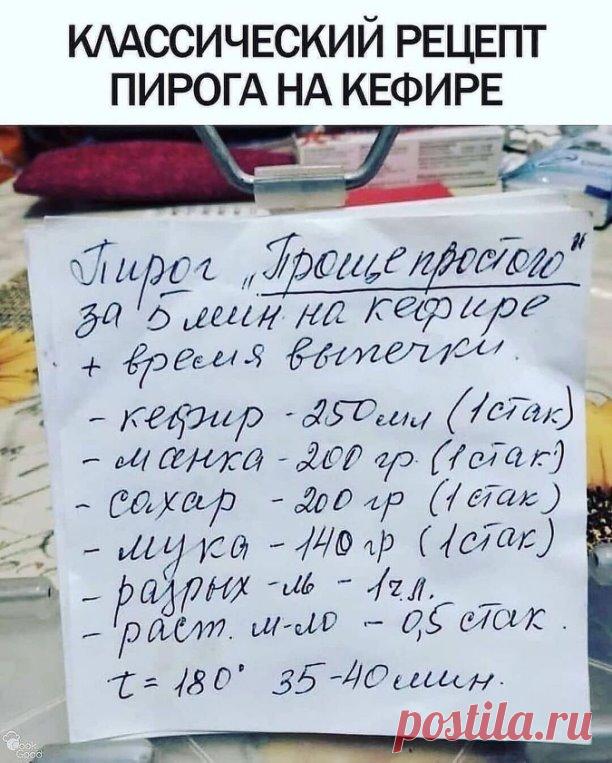 КЛАССИЧЕСКИЙ РЕЦЕПТ
ПИРОГА НА КЕФИРЕ
Пирог „Проще простого"
за 5 мин на кефире
+ время выпечки.
- кефир - 250 мл (1 стак)
- манка - 200 гр (1 стак)
- сахар - 200 гр (1 стак)
- мука - 140 гр (1 стак)
- разрых-ль - 1 ч.л.
- раст. м-ло - 0,5 стак.
t = 180° 35-40 мин.
postila.ru
Cook
Good